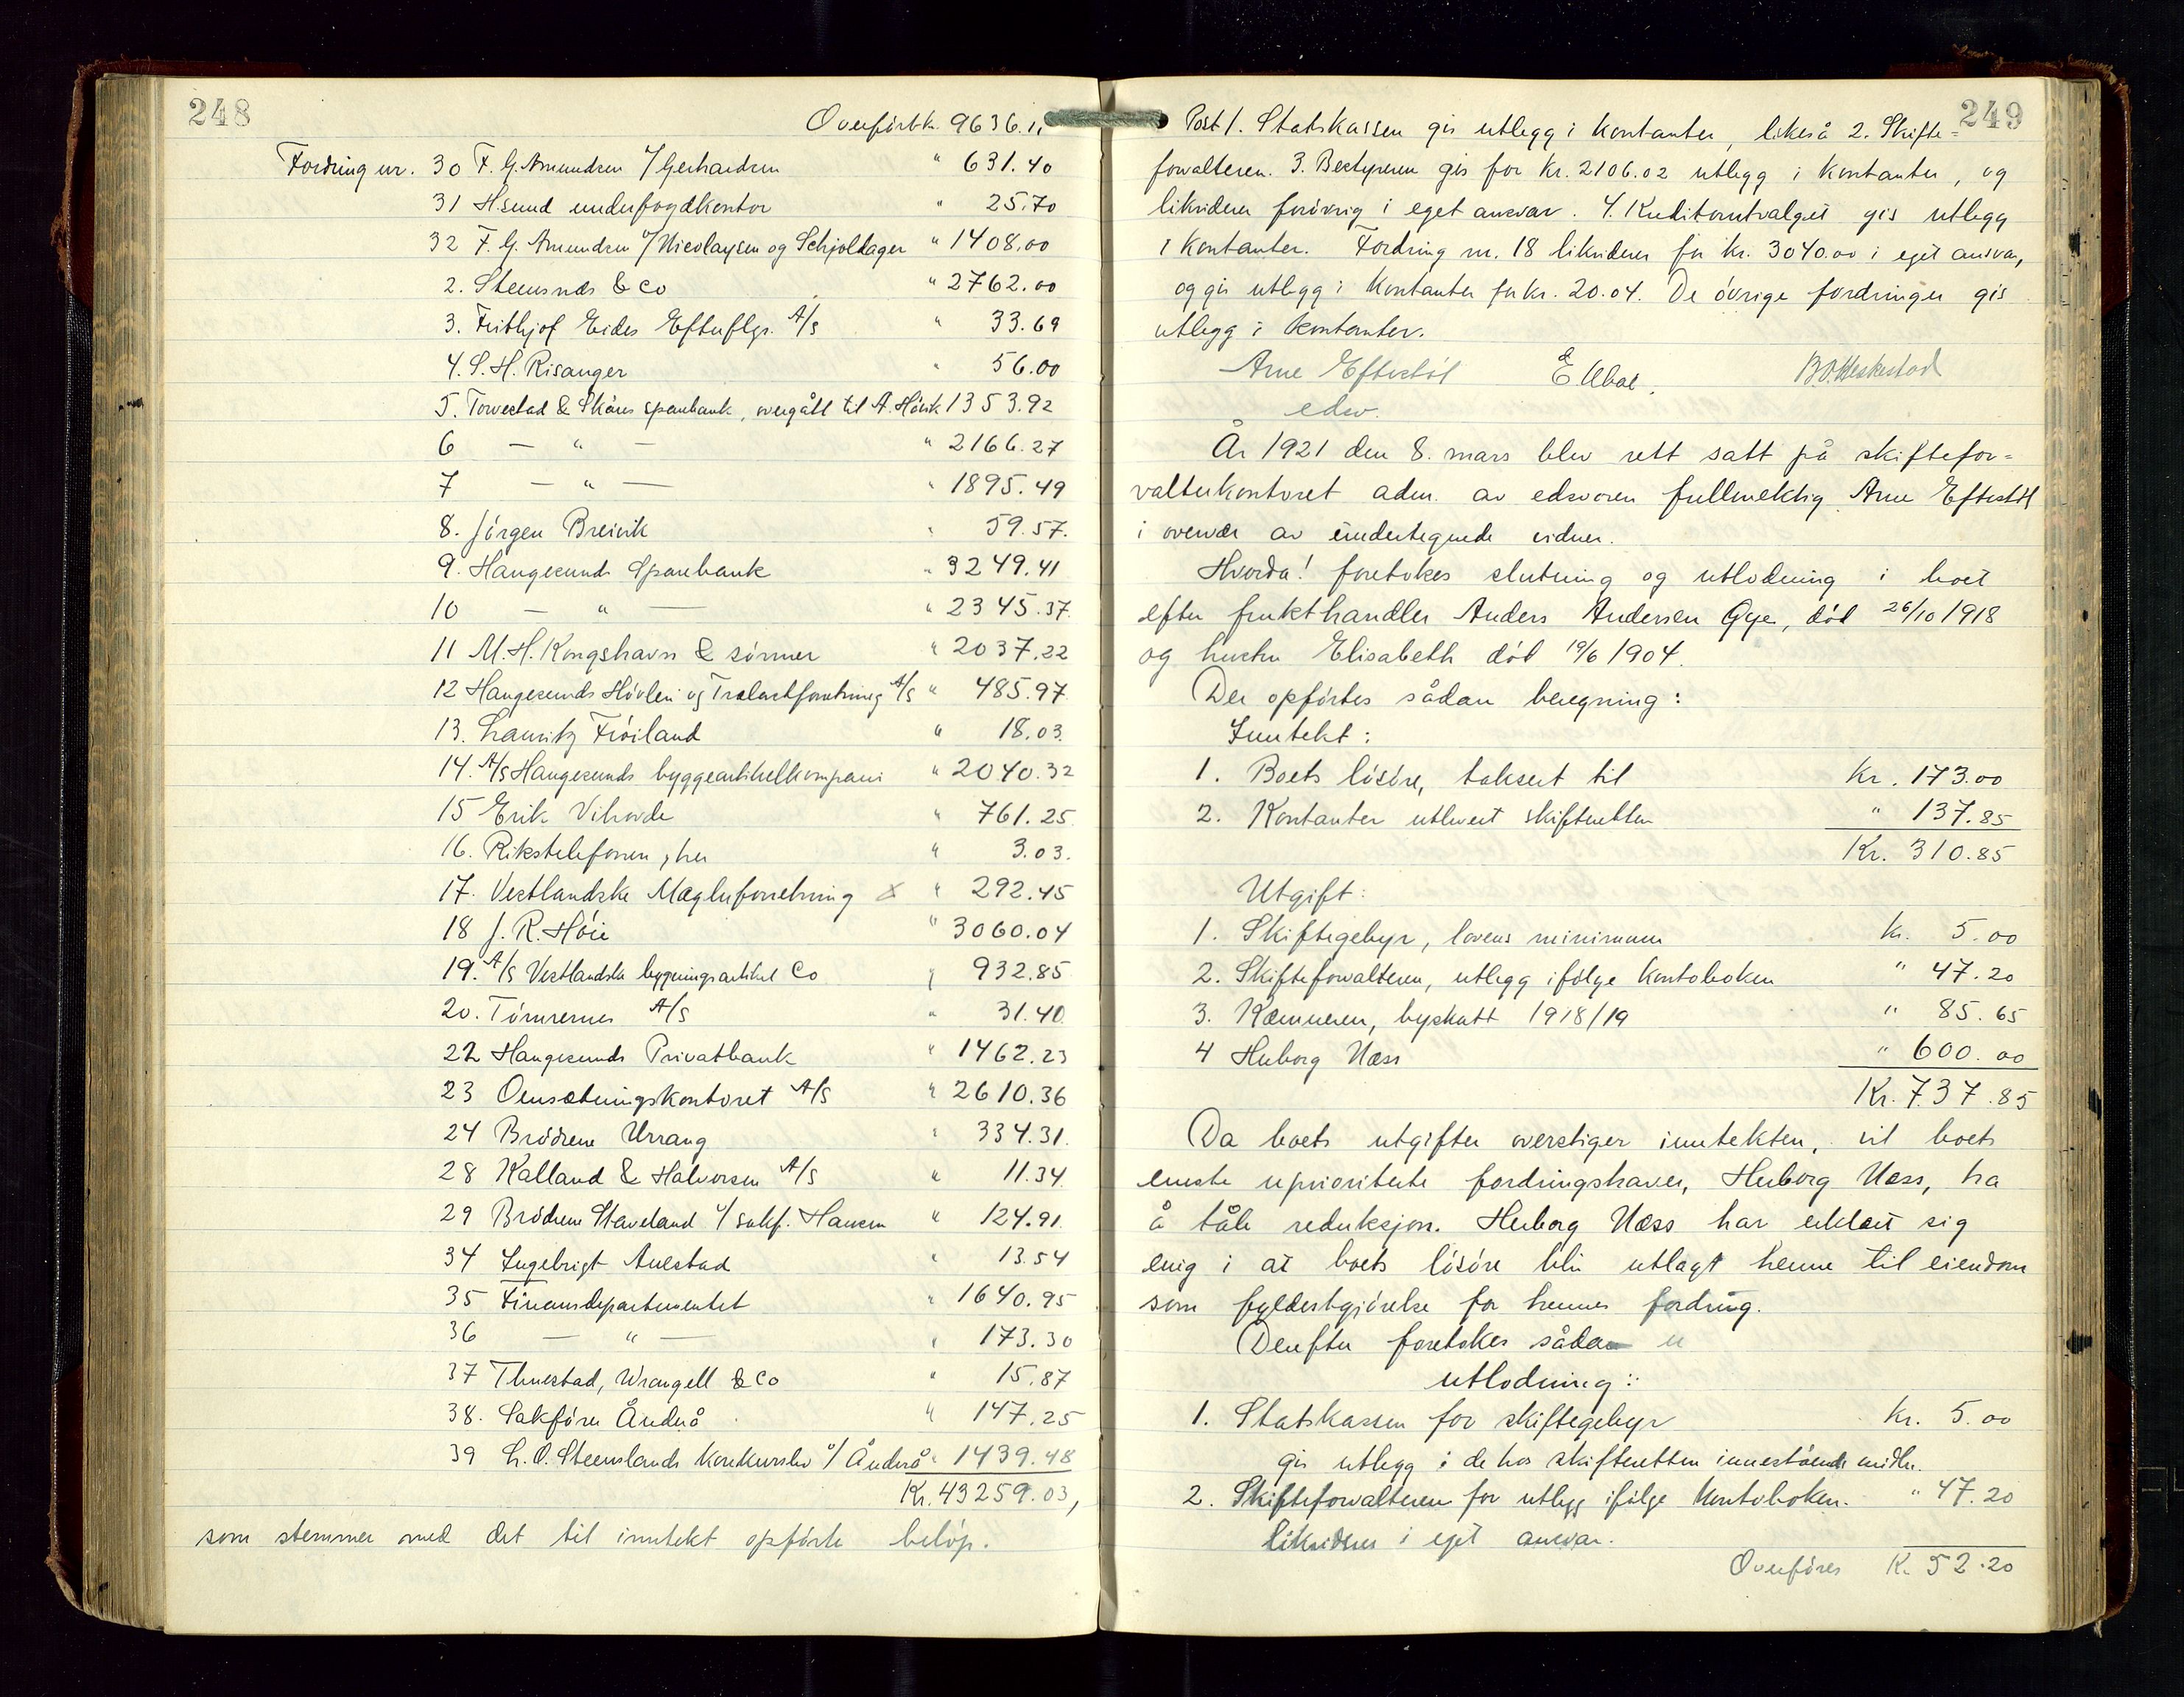 248
Overført kr. 9636.11
Fordring nr. 30 F. G. Amundsen o/ Gerhardsen " 631.40
31 H.sund underfogdkontor " 25.70
32 F. G. Amundsen o/ Nicolaysen og Schjoldager " 1408.00
2. Steensnæs & Co " 2762.00
3. Frithjof Eides Efterflgr. A/S " 33.69
4. S. H. Risanger " 56.00
5. Torvestad & Skåres sparebank, overgått til A. Hövik 1353.92
6 — " — " 2166.27
7 — " — " 1895.49
8. Jörgen Breivik " 59.57.
9. Haugesunds Sparebank " 3249.41
10 — " — " 2345.37.
11 M. H. Kongshavn & sönner " 2037.22
12 Haugesunds Hövleri og Trælastforretning A/S " 485.97
13. Lauritz Fröiland " 18.03.
14. A/S Haugesunds byggeartikelkompani " 2040.32
15 Erik Vihovde " 761.25
16. Rikstelefonen, her " 3.03.
17. Vestlandske Mæglerforretning x " 292.45
18 J. R. Höie " 3060.04
19. A/S Vestlandske bygningsartikel Co " 932.85
20. Tömrernes A/S " 31.40
22 Haugesunds Privatbank " 1462.23
23 Omsætningskontoret A/S " 2610.36
24 Brödrene Urrang " 334.31.
28 Kalland & Halvorsen A/S " 11.34.
29 Brödrene Staveland o/ sakf. Hansen " 124.91.
34 Ingebrigt Aulstad " 13.54
35 Finansdepartementet " 1640.95
36 — " — " 173.30
37 Thuestad, Wrangell & Co " 15.87
38. Sakförer Åndrå " 147.25
39 L. O. Steenslands konkursbo o/ Åndrå " 1439.48
Kr. 43259.03,
som stemmer med det til inntekt opförte belöp.
249
Post 1. Statskassen gis utlegg i kontanter, likeså 2. Skifte=
forvalteren. 3. Bestyreren gis for kr. 2106.02 utlegg i kontanter, og
likviderer forövrig i eget ansvar. 4. Kreditorutvalget gis utlegg
i kontanter. Fordring nr. 18 likviderer for kr. 3040.00 i eget ansvar,
og gis utlegg i kontanter for kr. 20.04. De övrige fordringer gis
utlegg i kontanter.
Arne Eftestöl E. B. O. Heskestad
edsv.
År 1921 den 8. mars blev rett satt på skiftefor=
valterkontoret adm. av edsvoren fullmektig Arne Eftestöl
i overvær av undertegnede vidner.
Hvorda! foretokes slutning og utlodning i boet
efter frukthandler Anders Andersen Gye, död 26/10 1918
og hustru Elisabeth död 19/6 1904.
Der opförtes sådan beregning:
Inntekt:
1. Boets lösöre, taksert til Kr. 173.00
2. Kontanter utlevert skifteretten " 137.85
Kr. 310.85
Utgift:
1. Skiftegebyr, lovens minimum kr. 5.00
2. Skifteforvalteren, utlegg ifölge kontoboken " 47.20
3. Kæmneren, byskatt 1918/19 " 85.65
4 Herborg Næss " 600.00
Kr. 737.85
Da boets utgifter overstiger inntekten, vil boets
eneste uprioriterte fordringshaver, Herborg Næss, ha
å tåle reduksjon. Herborg Næss har erklært sig
enig i at boets lösöre blir utlagt henne til eiendom
som fyldestgjörelse for hennes fordring.
Derefter foretokes sådan
utlodning:
1. Statskassen for skiftegebyr kr. 5.00
gis utlegg i de hos skifteretten innestående midler.
2. Skifteforvalteren for utlegg ifölge kontoboken. " 47.20
likvideres i eget ansvar.
Overföres K. 52.20